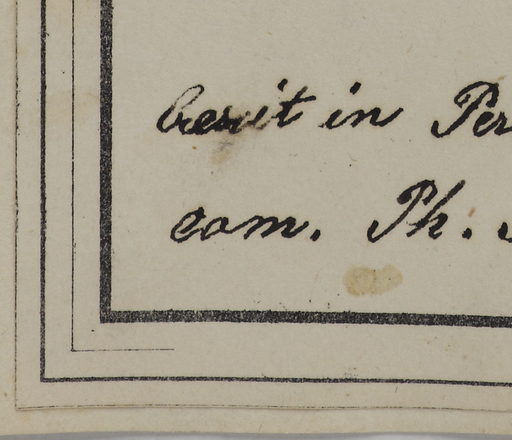 Cresit in Per
com. Ph.